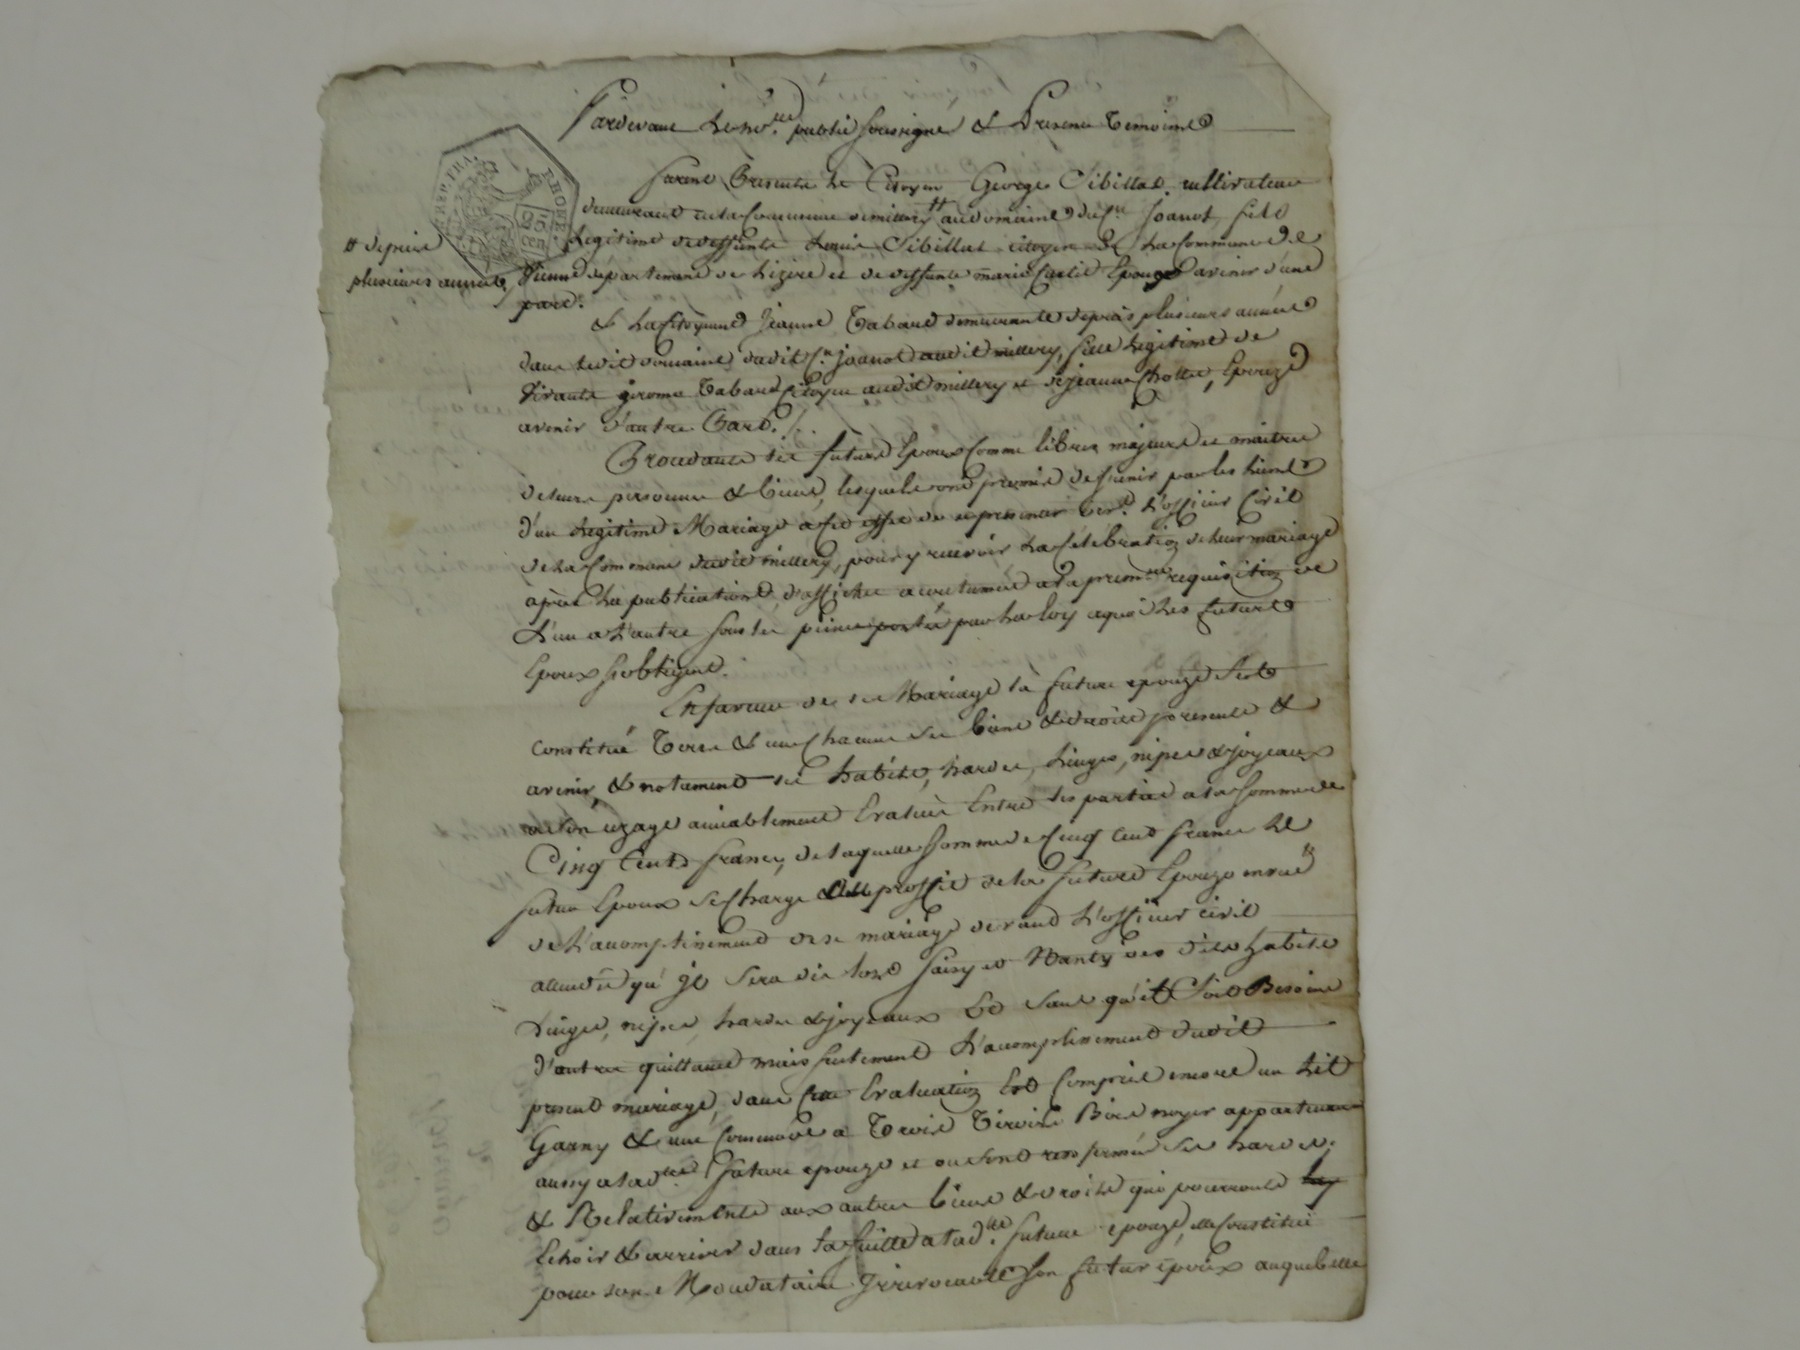 Pardevant le no.re public soussigné & Presents Temoins
furent Presents le Citoyen George Sibillat cultivateur
demeurant en la Commune de millery # au domaine du C.en Joanot, fils
# depuis
plusieurs années
legitime de deffunts Louis Sibillat citoyen de la Commune de
REP. FRA.
RHONE
25
cen
Vienne département de Lizere et de deffunte marie Epoux avenir d'une
part.
& La Citoyenne Jeanne Tabard demeurante depuis plusieurs années
dans ledit domaine dudit C.en joanot audit millery, fille legitime de
vivants jerome Tabard Citoyen audit millery et de jeanne Chollet, Epouze
avenir d'autre Part.
Procedants les futurs Epoux Comme libres, majeurs et maitres
de leurs personnes & biens, lesquels ont promis de s'unir par les Liens
d'un Legitime Mariage a cet effet de se presenter dev.t L'officier Civil
de la Commune dudit millery, pour y recevoir La Célébration de leur mariage
après La publications d'affiches acoutumée a la prem.re requisition de
L'un a L'autre sous les peines portés par la loy a quoi Les futurs
Epoux s'obligent.
En faveur de ce Mariage la future epouze s'est
constitué Tous & un Chacuns ses biens & droits presents &
avenir, & notament ses habits, hardes, Linges, nipes & joyeaux
a son uzage amiablement Evalués Entre les parties a la somme de
Cinq Cents francs, de laquelle somme de Cinq Cent francs le
futur Epoux se Charge au proffit de la future Epouze en vue
de L'acomplissement de ce mariage devant L'officier civil
attendu qu'il sera dès lors saisy et Nanty des dits habits
Linges, nipes, hardes & joyeaux Et sans qu'il soit Besoins
d'autre quittance mais seulement L'acomplissement dudit
present mariage, dans cette Evaluation Est Compris encore un Lit
Garny & une Commode a Trois Tiroirs Bois noyer appartenant
aussy a lad.te future epouze et ou sont renfermés ses hardes,
& Relativements aux autres biens & droits qui pourronts
Echoir & arriver dans la suitte a lad.te future epouze, elle Constitue
pour son Mandataire Irrevocable son futur epoux auquel elle